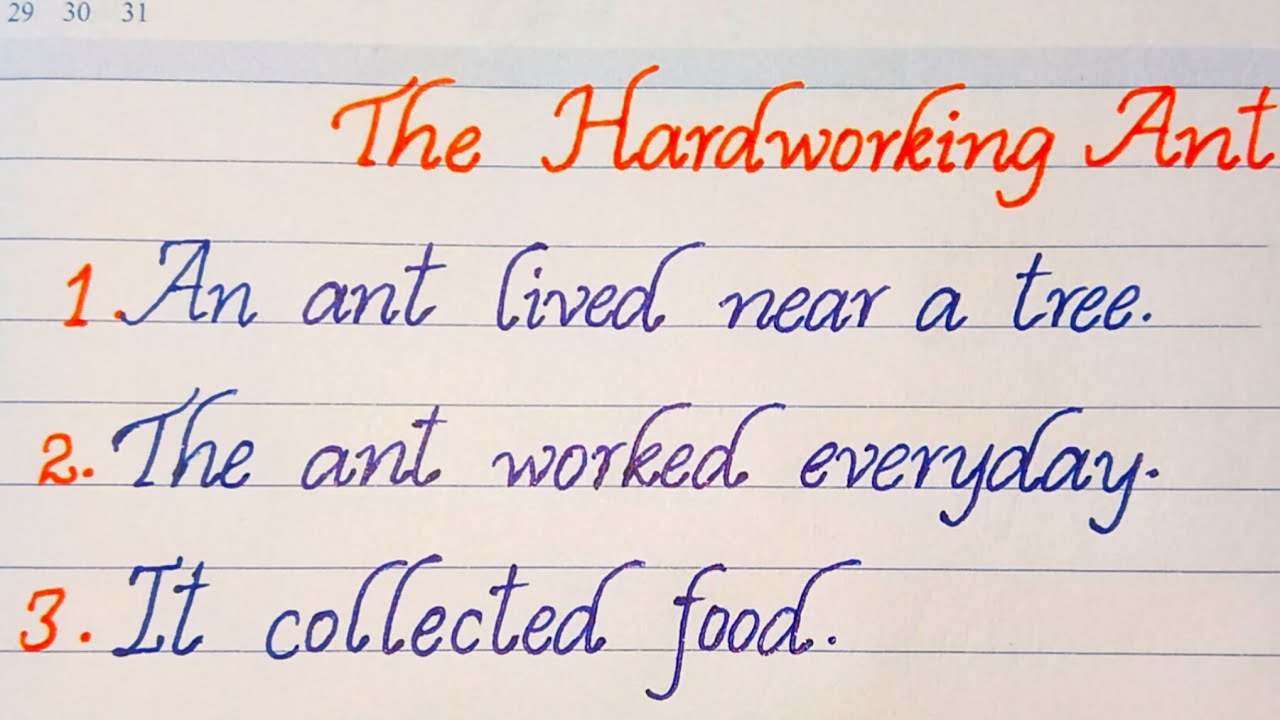 29 30 31
The Hardworking Ant
1. An ant lived near a tree.
2. The ant worked everyday.
3. It collected food.